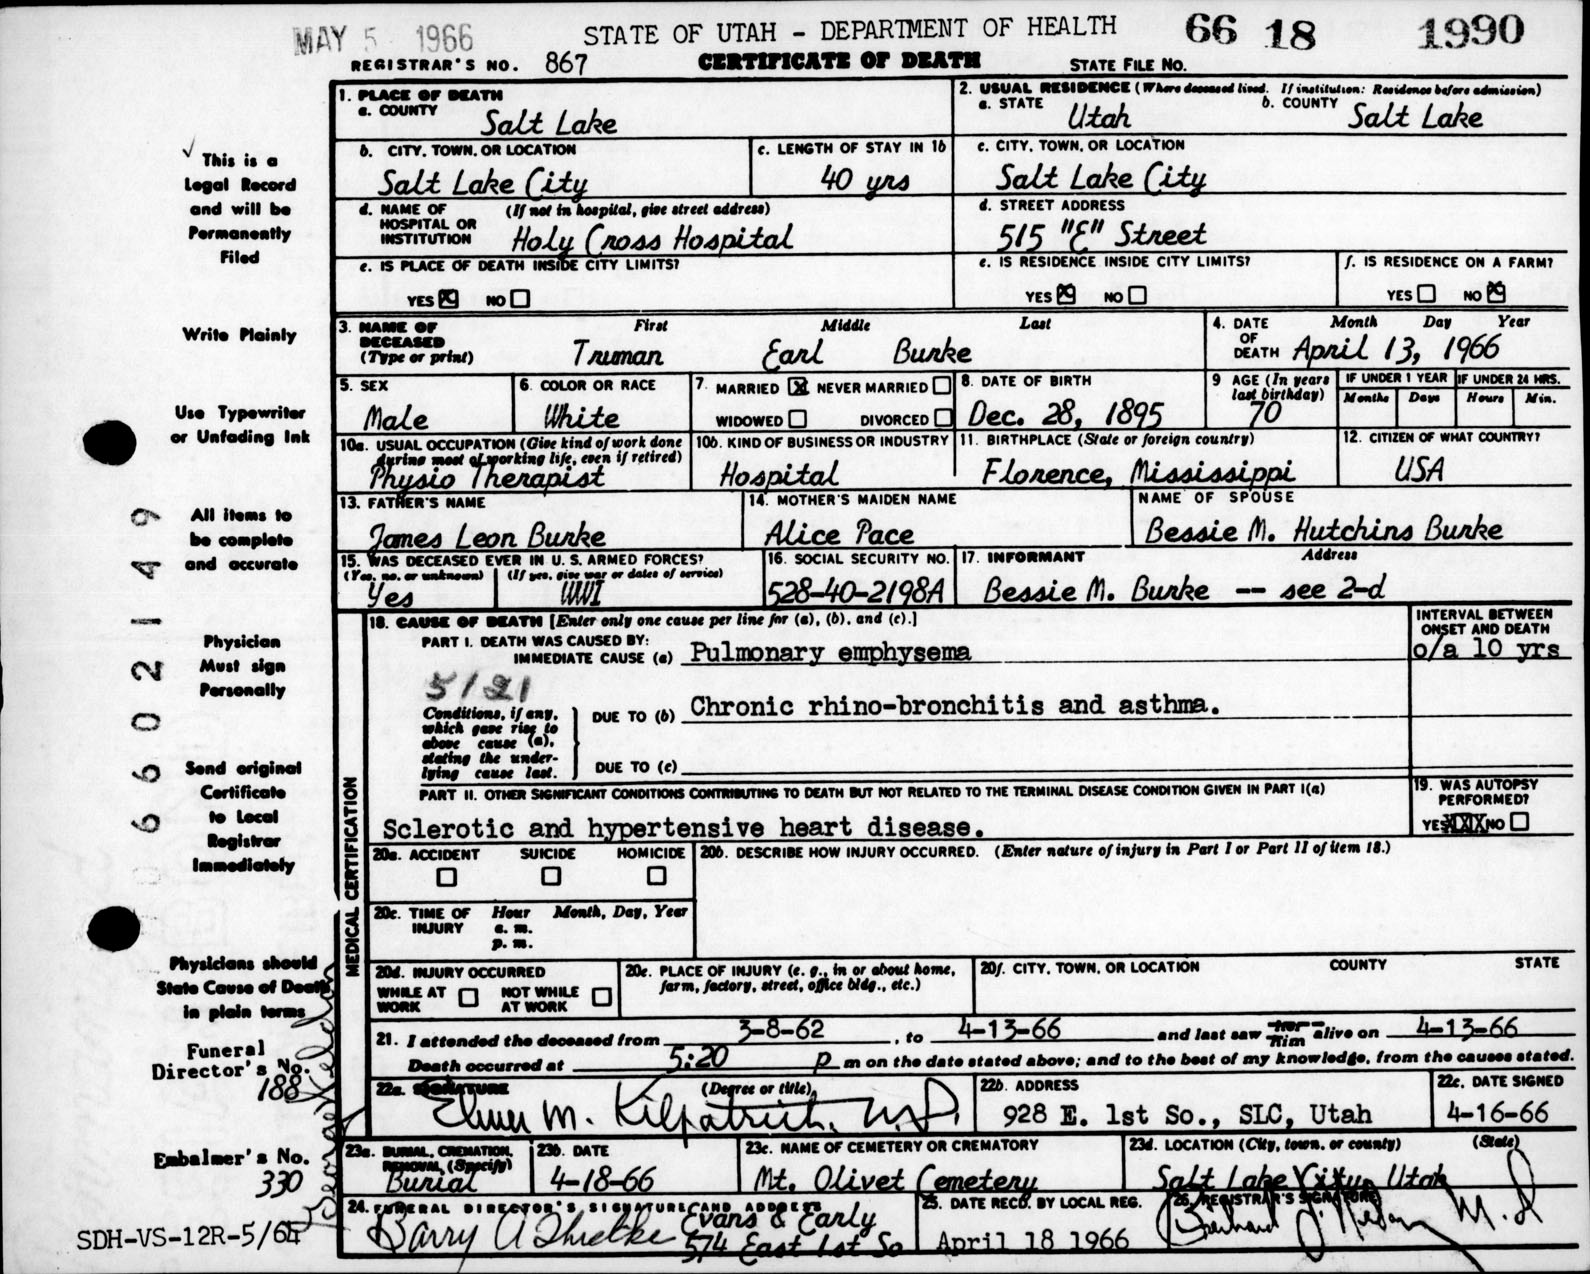 MAY 5 1966
STATE OF UTAH - DEPARTMENT OF HEALTH
66 18 1990
REGISTRAR'S NO. 867
CERTIFICATE OF DEATH
STATE FILE NO.
1. PLACE OF DEATH
a. COUNTY
Salt Lake
2. USUAL RESIDENCE (Where deceased lived. If institution: Residence before admission)
a. STATE Utah
b. COUNTY Salt Lake
b. CITY, TOWN, OR LOCATION
Salt Lake City
c. LENGTH OF STAY IN 1b
40 yrs
c. CITY, TOWN, OR LOCATION
Salt Lake City
d. NAME OF HOSPITAL OR INSTITUTION (If not in hospital, give street address)
Holy Cross Hospital
d. STREET ADDRESS
515 "E" Street
e. IS PLACE OF DEATH INSIDE CITY LIMITS?
YES NO
e. IS RESIDENCE INSIDE CITY LIMITS?
YES NO
f. IS RESIDENCE ON A FARM?
YES NO
3. NAME OF DECEASED (Type or print)
First Middle Last
Truman Earl Burke
4. DATE OF DEATH
Month Day Year
April 13, 1966
5. SEX
Male
6. COLOR OR RACE
White
7. MARRIED NEVER MARRIED
WIDOWED DIVORCED
8. DATE OF BIRTH
Dec. 28, 1895
9 AGE (In years last birthday)
70
IF UNDER 1 YEAR
Months Days
IF UNDER 24 HRS.
Hours Min.
10a. USUAL OCCUPATION (Give kind of work done during most of working life, even if retired)
Physio Therapist
10b. KIND OF BUSINESS OR INDUSTRY
Hospital
11. BIRTHPLACE (State or foreign country)
Florence, Mississippi
12. CITIZEN OF WHAT COUNTRY?
USA
13. FATHER'S NAME
James Leon Burke
14. MOTHER'S MAIDEN NAME
Alice Pace
NAME OF SPOUSE
Bessie M. Hutchins Burke
15. WAS DECEASED EVER IN U. S. ARMED FORCES?
(Yes, no, or unknown) (If yes, give war or dates of service)
Yes WWI
16. SOCIAL SECURITY NO.
528-40-2198A
17. INFORMANT Address
Bessie M. Burke -- see 2-d
MEDICAL CERTIFICATION
18. CAUSE OF DEATH [Enter only one cause per line for (a), (b), and (c).]
PART I. DEATH WAS CAUSED BY:
IMMEDIATE CAUSE (a) Pulmonary emphysema
INTERVAL BETWEEN ONSET AND DEATH
o/a 10 yrs
5121
Conditions, if any, which gave rise to above cause (a), stating the underlying cause last.
DUE TO (b) Chronic rhino-bronchitis and asthma.
DUE TO (c)
PART II. OTHER SIGNIFICANT CONDITIONS CONTRIBUTING TO DEATH BUT NOT RELATED TO THE TERMINAL DISEASE CONDITION GIVEN IN PART I(a)
Sclerotic and hypertensive heart disease.
19. WAS AUTOPSY PERFORMED?
YES NO
20a. ACCIDENT SUICIDE HOMICIDE
20b. DESCRIBE HOW INJURY OCCURRED. (Enter nature of injury in Part I or Part II of item 18.)
20c. TIME OF INJURY
Hour Month, Day, Year
a. m.
p. m.
20d. INJURY OCCURRED
WHILE AT WORK NOT WHILE AT WORK
20e. PLACE OF INJURY (e. g., in or about home, farm, factory, street, office bldg., etc.)
20f. CITY, TOWN, OR LOCATION COUNTY STATE
21. I attended the deceased from 3-8-62, to 4-13-66 and last saw her him alive on 4-13-66
Death occurred at 5:20 p m on the date stated above; and to the best of my knowledge, from the causes stated.
22a. SIGNATURE (Degree or title)
Elmer M. Kilpatrick, M.D.
22b. ADDRESS
928 E. 1st So., SLC, Utah
22c. DATE SIGNED
4-16-66
23a. BURIAL, CREMATION, REMOVAL, (Specify)
Burial
23b. DATE
4-18-66
23c. NAME OF CEMETERY OR CREMATORY
Mt. Olivet Cemetery
23d. LOCATION (City, town, or county) (State)
Salt Lake City, Utah
24. FUNERAL DIRECTOR'S SIGNATURE AND ADDRESS
Barry A Thielke Evans & Early
574 East 1st So
25. DATE RECD. BY LOCAL REG.
April 18 1966
26. REGISTRAR'S SIGNATURE
M.D
This is a
Legal Record
and will be
Permanently
Filed
Write Plainly
Use Typewriter
or Unfading Ink
All items to
be complete
and accurate
Physician
Must sign
Personally
Send original
Certificate
to Local
Registrar
Immediately
Physicians should
State Cause of Death
in plain terms
Funeral
Director's No.
188
Embalmer's No.
330
SDH-VS-12R-5/64
6602149